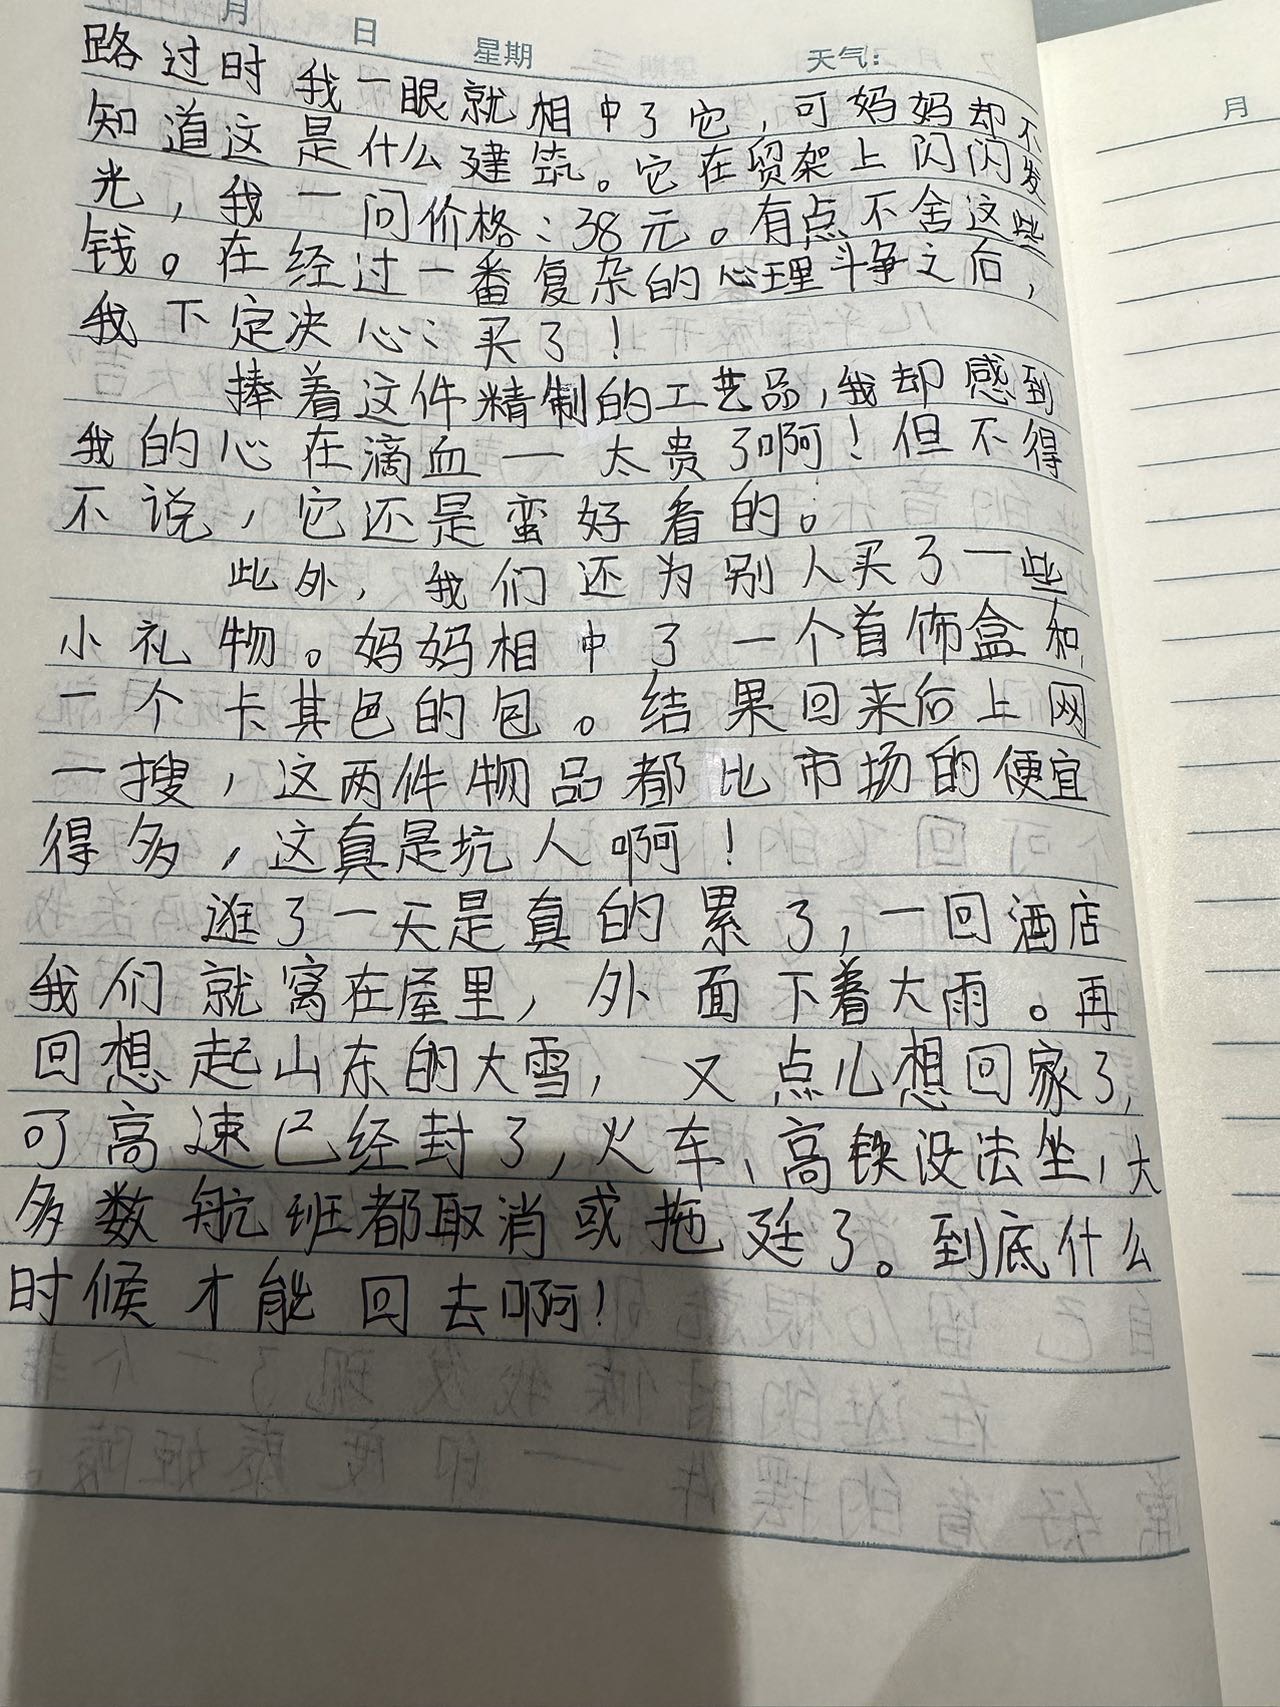 月 日 星期 天气：
路过时我一眼就相中了它，可妈妈却不
知道这是什么建筑。它在贸架上闪闪发
光，我一问价格：38元。有点不舍这些
钱。在经过一番复杂的心理斗争之后，
我下定决心：买了！
捧着这件精制的工艺品，我却感到
我的心在滴血一太贵了啊！但不得
不说，它还是蛮好看的。
此外，我们还为别人买了一些
小礼物。妈妈相中了一个首饰盒和
一个卡其色的包。结果回来后上网
一搜，这两件物品都比市场的便宜
得多，这真是坑人啊！
逛了一天是真的累了，一回酒店
我们就窝在屋里，外面下着大雨。再
回想起山东的大雪，又点儿想回家了，
可高速已经封了，火车、高铁没法坐，大
多数航班都取消或拖延了。到底什么
时候才能回去啊！
月